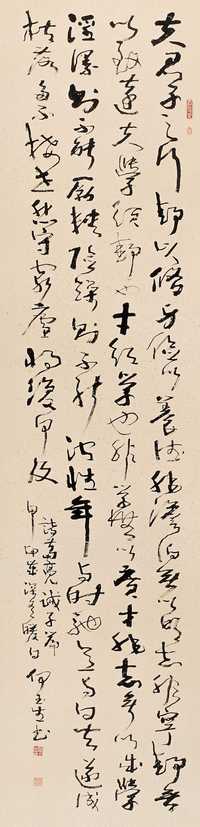 夫君子之行静以脩身儉以養德非澹泊無以明志非寧静無
以致遠夫學須静也才須學也非學無以廣才非志無以成學
滔漫則不能勵精險躁則不能治性年与時馳意与日去遂成
枯落多不接世悲守窮廬將復何及
諸葛亮誡子篇
甲申 深冬暖日 書